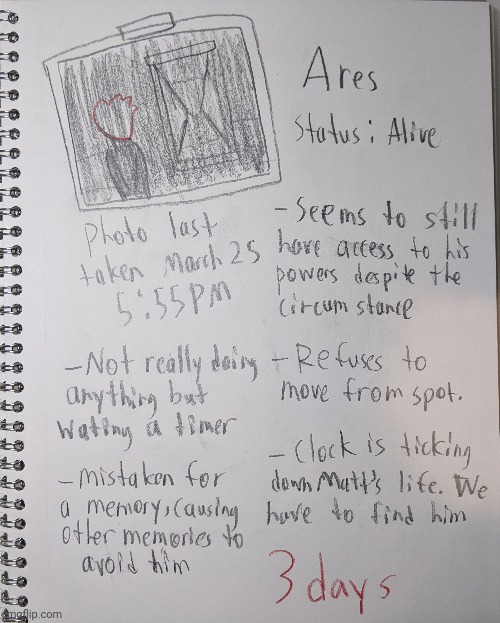 Ares
Status: Alive
Photo last
taken March 25
5:55PM
-Seems to still
have access to his
powers despite the
circumstance
-Not really doing
anything but
wating a timer
-Refuses to
move from spot.
-mistaken for
a memory, causing
other memories to
avoid him
-Clock is ticking
down Matt's life. We
have to find him
3 days
imgflip.com